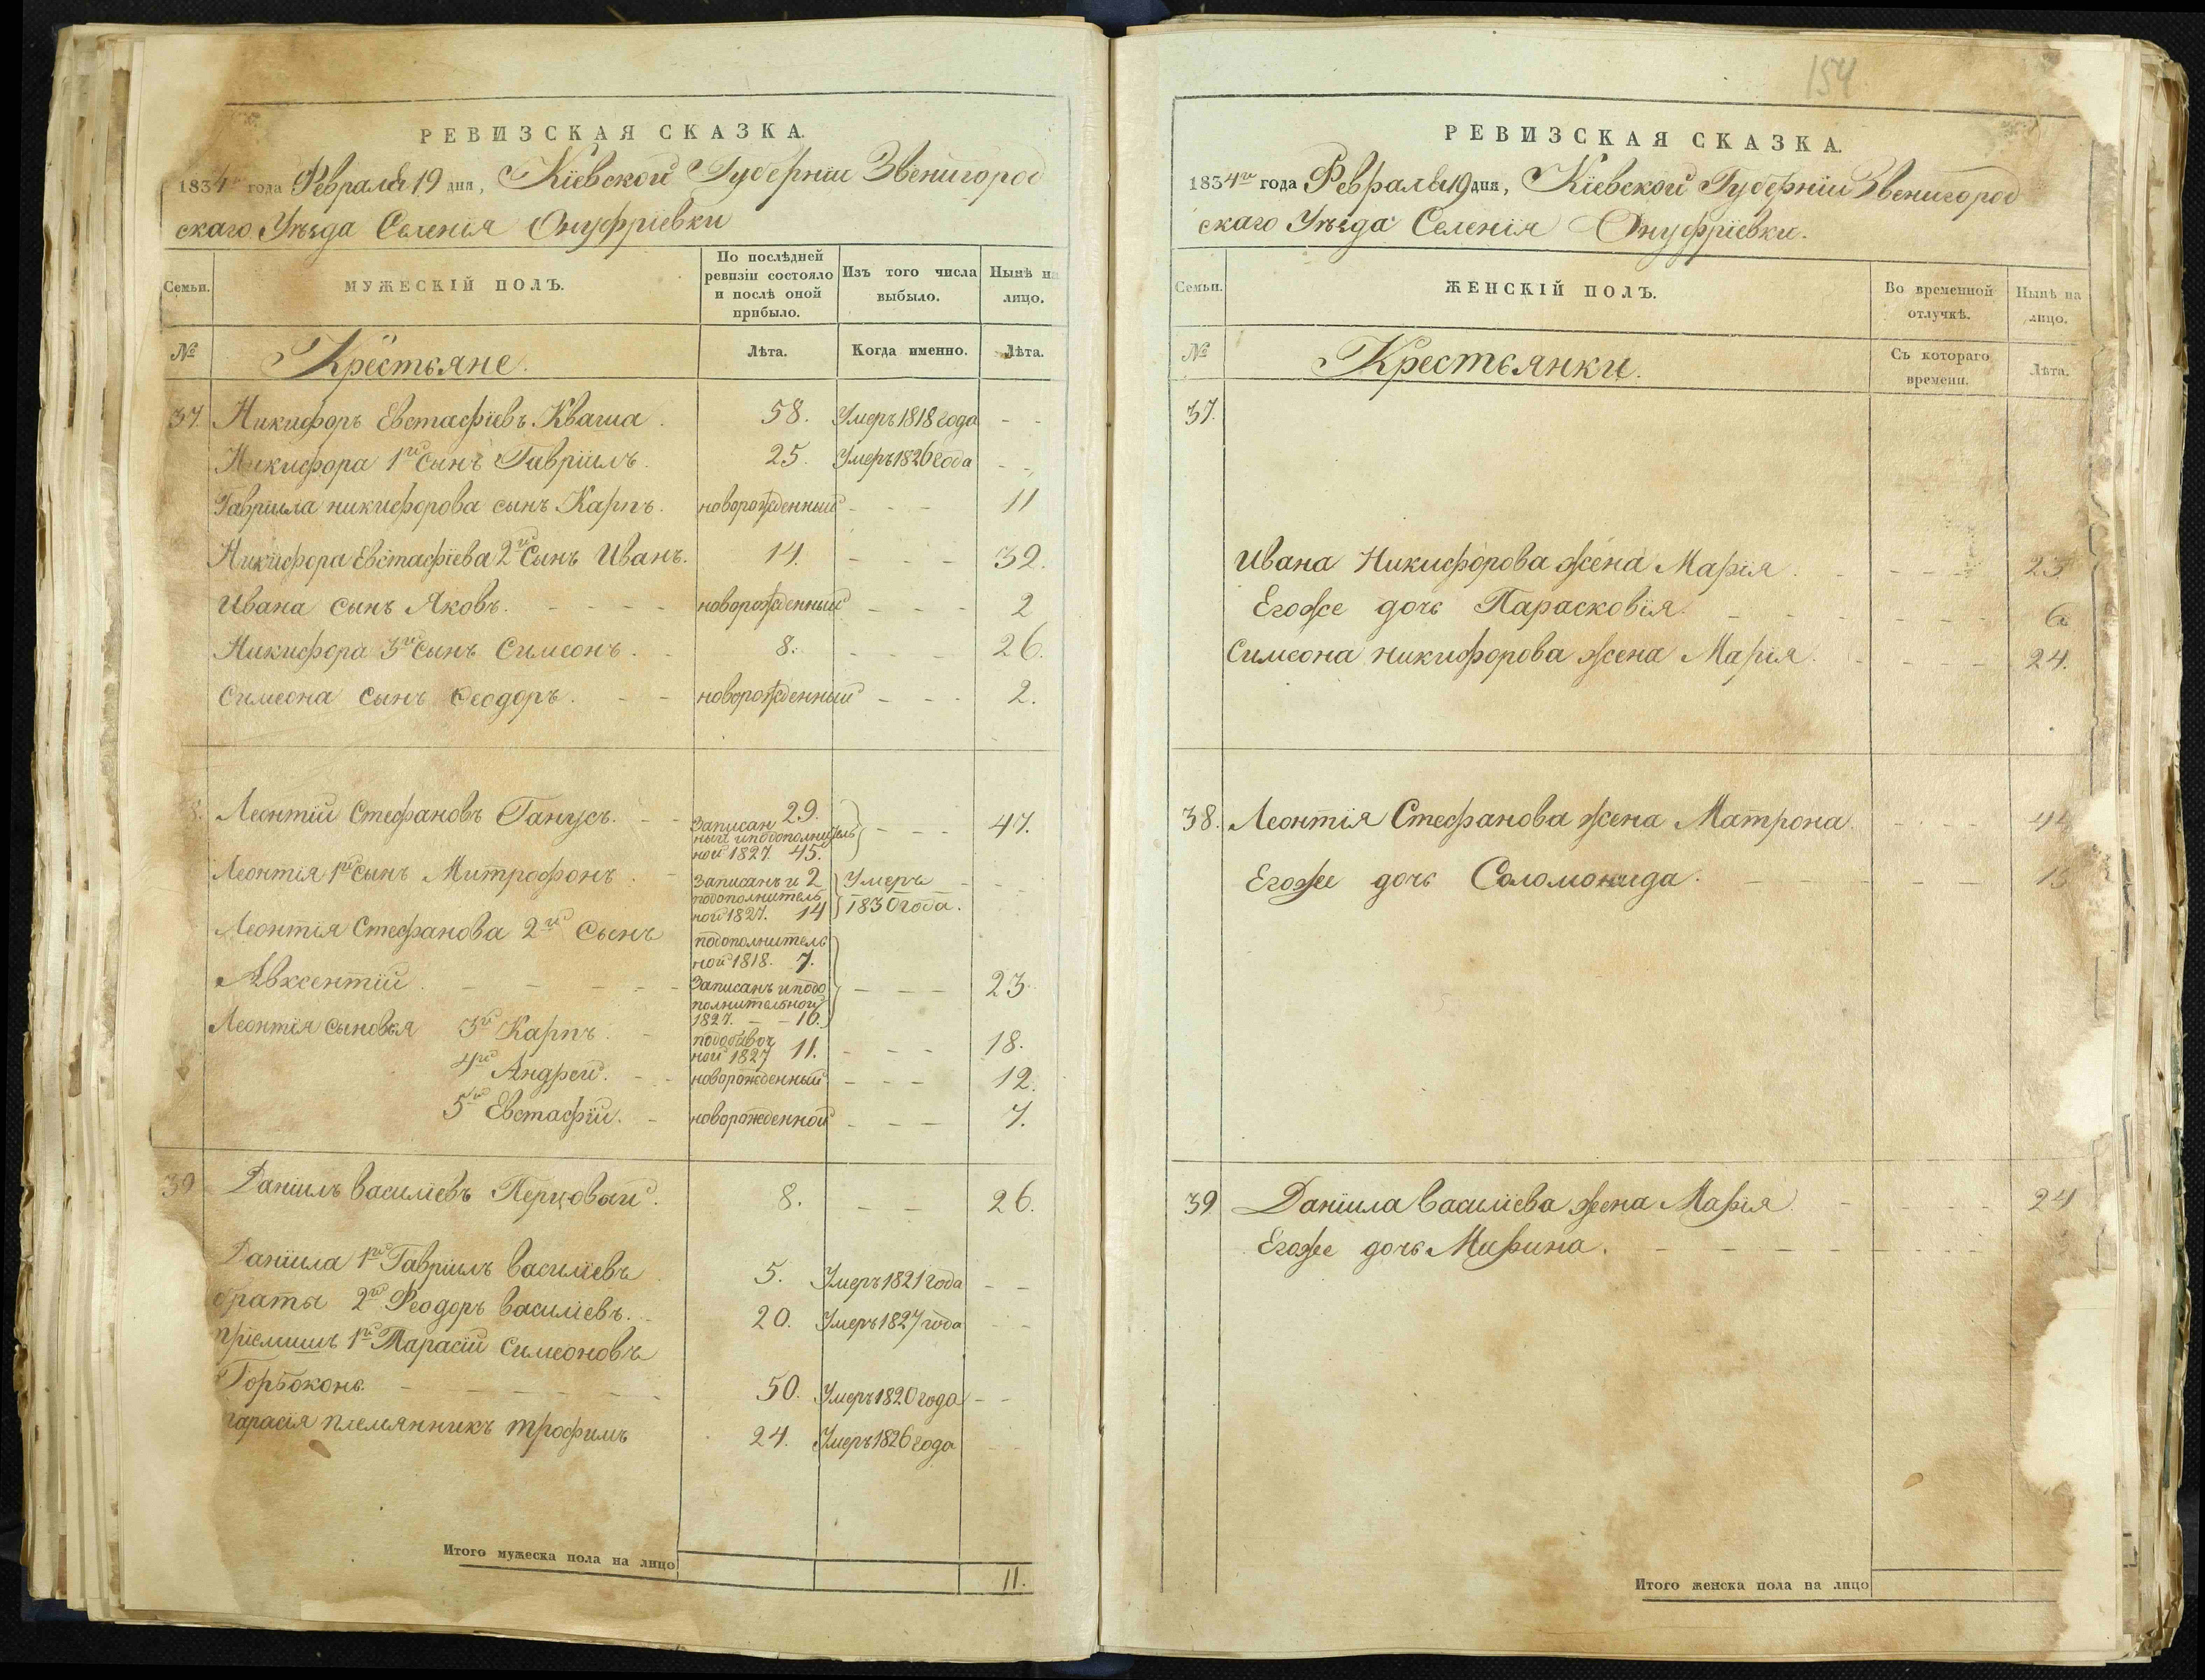 РЕВИЗСКАЯ СКАЗКА.
1834го года Февраля 19 дня, Кіевской Губерніи Звенигород
скаго Уѣзда Селенія Онуфріевки
Семьи.
МУЖЕСКІЙ ПОЛЪ.
По послѣдней
ревизіи состояло
и послѣ оной
прибыло.
Изъ того числа
выбыло.
Нынѣ на
лицо.
№
Крестьяне.
Лѣта.
Когда именно.
Лѣта.
37. Никифоръ Евстафіевъ Кваша. 58. Умеръ 1818 года - -
Никифора 1й Сынъ Гавріилъ. 25. Умеръ 1826 года - -
Гавріила никифорова сынъ Карпъ. новорожденный - - - 11
Никифора Евстафіева 2й Сынъ Иванъ. 14. - - - 32.
Ивана сынъ Яковъ. - - - - новорожденный - - - 2
Никифора 3й Сынъ Симеонъ. - 8. - - - 26.
Симеона сынъ Феодоръ. - - новорожденный - - - 2.
8. Леонтій Стефановъ Ганусъ. - - 29.
Записан
ный иподополнитель
ной 1827. 45. - - - 47.
Леонтія 1й Сынъ Митрофонъ. - Записанъ и 2
подополнитель
ной 1827. 14
Умеръ
1830 года.
Леонтія Стефанова 2й Сынъ
Авксентій. - - - - -
подополнитель
ной 1818. 7.
Записанъ иподо
полнительной
1827. - - 16. - - - 23.
Леонтія сыновья 3й Карпъ. -
ной 1827 11. - - - 18.
4й Андрей. - - новорожденный - - - 12.
5й Евстафій. - новорожденной - - - 7.
39 Даніилъ Василіевъ Перцовый. 8. - - 26.
Даніила 1й Гавріилъ Василіевъ 5. Умеръ 1821 года - -
браты 2й Феодоръ Василіевъ. - 20. Умеръ 1827 года - -
Пріемишъ 1й Тарасій Симеоновъ
Горбоконь. - - - - - - 50. Умеръ 1820 года - -
тарасія племянникъ трофимъ 24. Умеръ 1826 года
Итого мужеска пола на лицо 11.
154
РЕВИЗСКАЯ СКАЗКА.
1834го года Февраля 19 дня, Кіевской Губерніи Звенигород
скаго Уѣзда Селенія Онуфріевки.
Семьи.
ЖЕНСКІЙ ПОЛЪ.
Во временной
отлучкѣ.
Нынѣ на
лицо.
№
Крестьянки.
Съ котораго
времени.
Лѣта.
37.
Ивана Никифорова жена Марія. - - - - 23
Егоже дочь Парасковія. - - - - - - - 6
Симеона никифорова жена Марія. - - - - 24.
38. Леонтія Стефанова жена Матрона. - - -
Егоже дочь Соломонида. - - - - - - 13
39 Даніила Василіева жена Марія. - - - - - 24
Егоже дочь Марина. - - - - - - - -
Итого женска пола на лицо